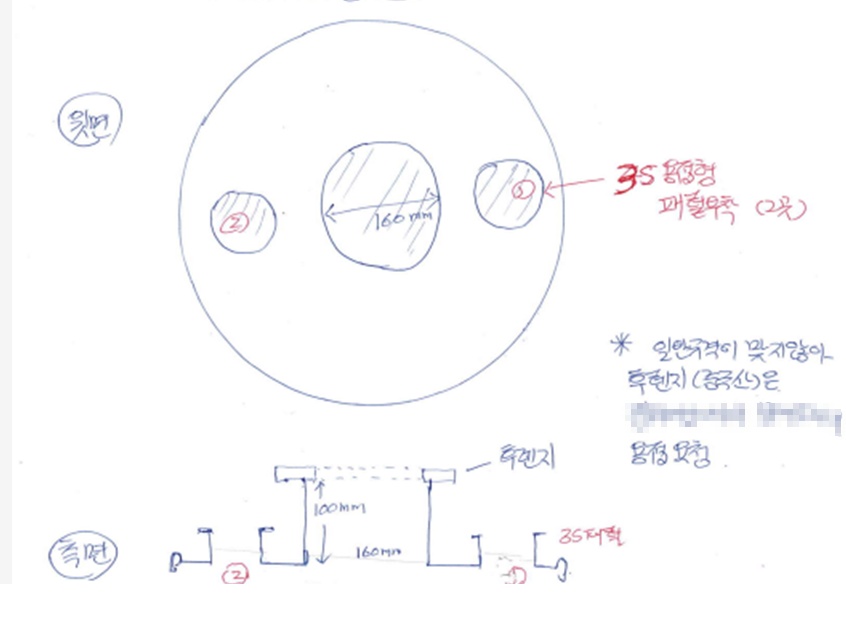 윗면
②
160mm
①
3S 용접형
페럴부착 (2곳)
* 일반규격이 맞지않아
후렌지(중국산)은
용접요청.
후렌지
100mm
측면
160mm
3S페럴
②
①